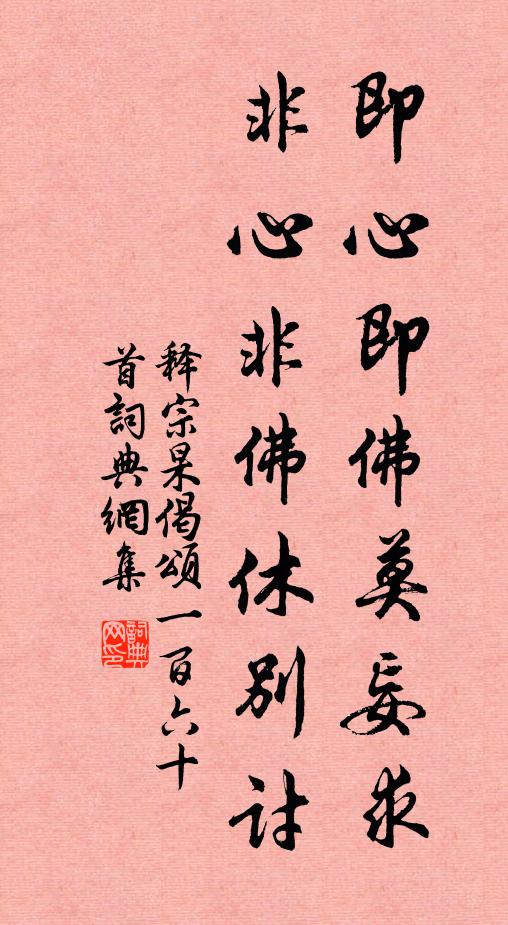 即心即佛莫妄求
非心非佛休別討
釋宗杲偈頌一百六十
首詞典網集
詞典
网印